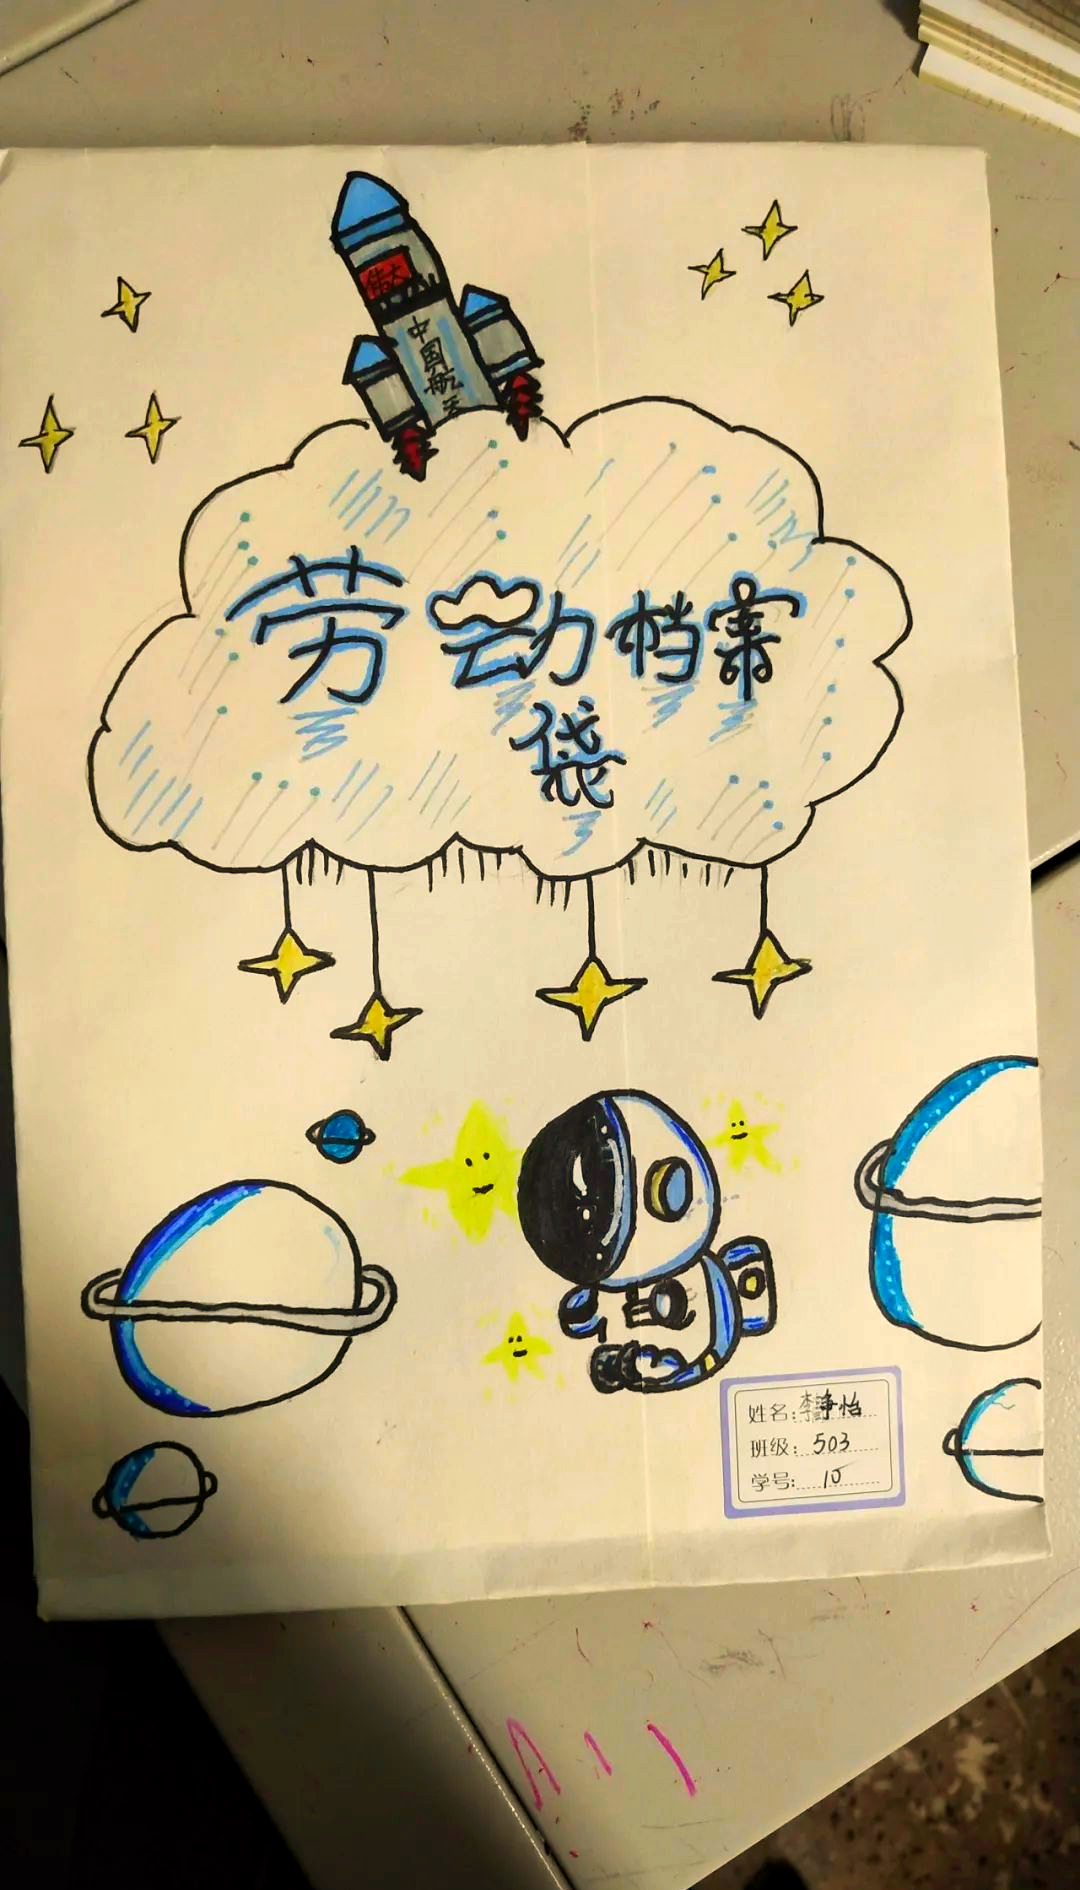 伟大
中国航天
劳动档案
袋
姓名:李静怡
班级:503
学号:15